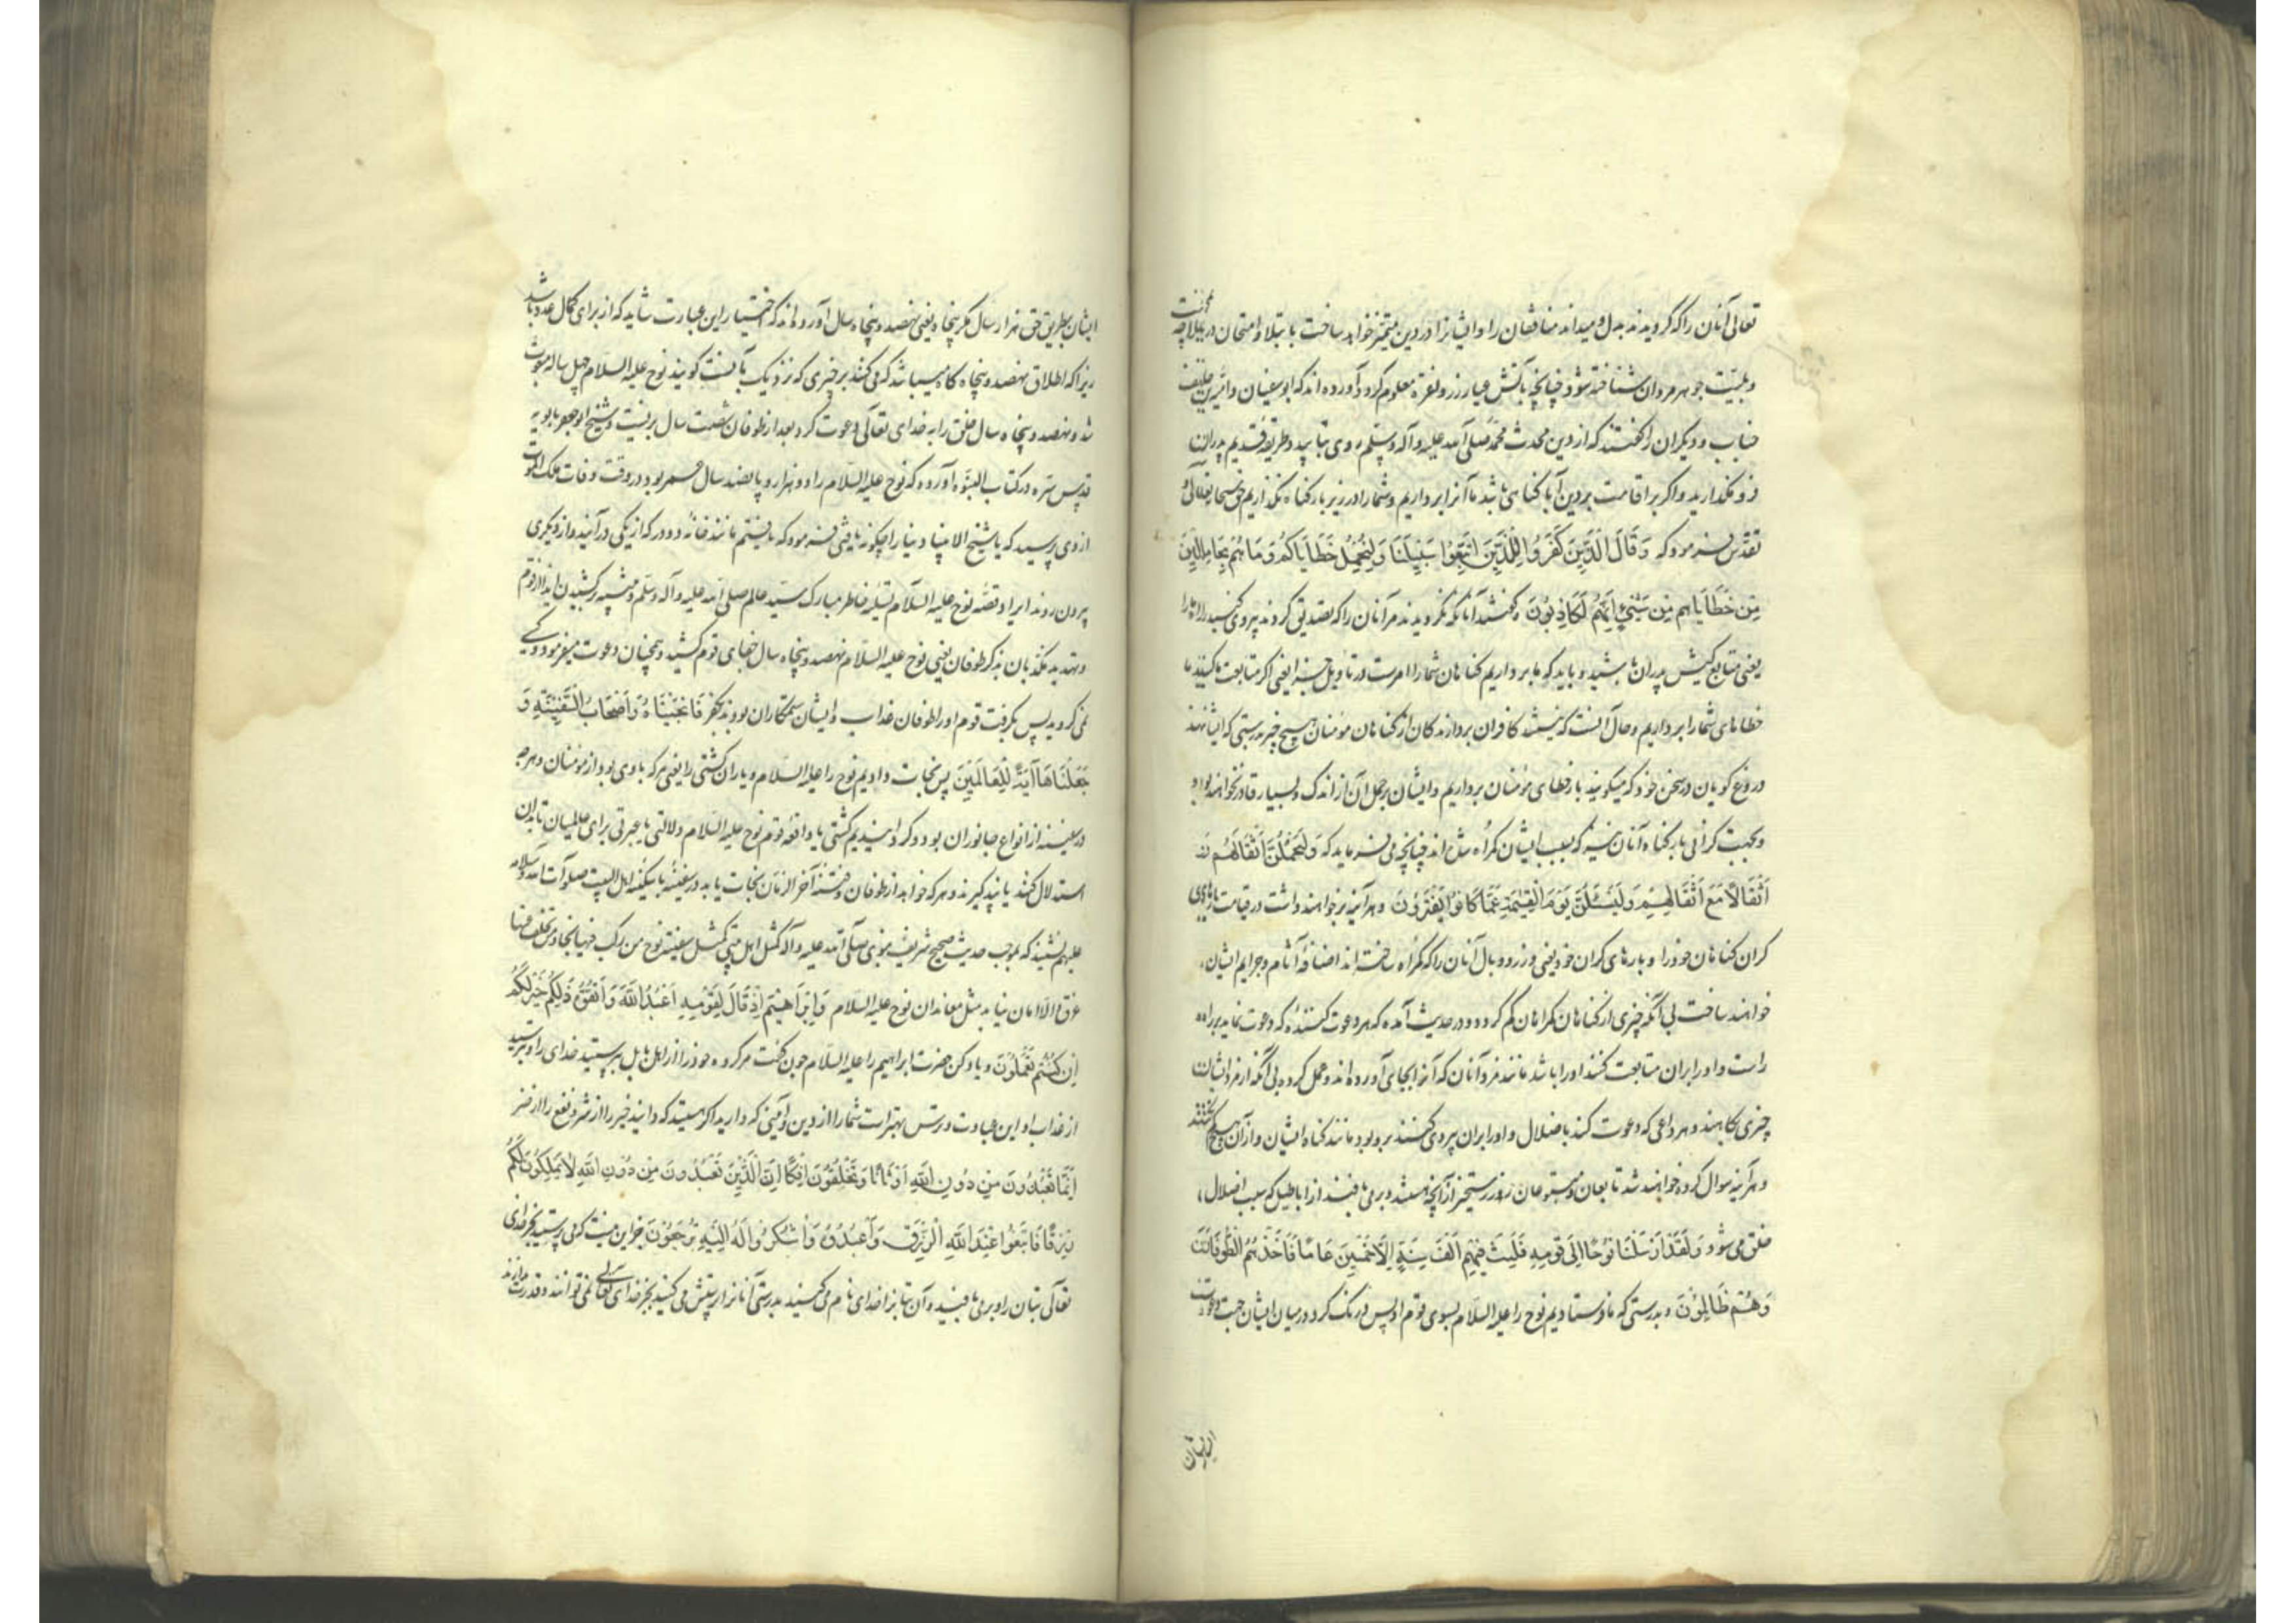 تعالی آنان را که گرویدند بدل و میداند منافقان را و ایشانرا در دین متمیز خواهد ساخت بابتلا و امتحان در بلا چه محنت
و بلیت جوهر مردان شناخته شود چنانچه بآتش عیار زر و نقره معلوم گردد آورده اند که ابوسفیان و
جناب و دیگران را گفتند که از دین محدث محمد صلی الله علیه وآله وسلم روی بتابید و طریقه قدیم پدران
فرو مگذارید و اگر بر اقامت بر دین آبا گناهی باشد ما آنرا برداریم و شما را در زیر بار گناه نگذاریم حق سبحانه تعالی و
تقدس فرمود که وَقَالَ الَّذِينَ كَفَرُوا لِلَّذِينَ اتَّبِعُوا سَبِيلَنَا وَلْنَحْمِلْ خَطَايَاكُمْ وَمَا هُمْ بِحَامِلِينَ
مِنْ خَطَايَاهُمْ مِنْ شَيْءٍ إِنَّهُمْ لَكَاذِبُونَ و گفتند آنانکه نگرویدند مر آنان را که تصدیق کردند پیروی کنید راه ما را
یعنی متابع کیش پدران باشید و باید که ما برداریم گناهان شما را امرست در تاویل جزا یعنی اگر متابعت ما کنید ما
خطاهای شما را برداریم و حال آنست که نیستند کافران بردارندگان از گناهان مؤمنان هیچ چیز بدرستی که ایشانند
دروغ گویان در سخن خود که میگویند بار خطای مؤمنان برداریم و ایشان بر حمل آن از اندک و بسیار قادر نخواهند بود
و بجهت گرانی بار گناه آنان نیز که بسبب ایشان گمراه شده اند چنانچه می فرماید که وَلَيَحْمِلُنَّ أَثْقَالَهُمْ وَ
أَثْقَالًا مَعَ أَثْقَالِهِمْ وَلَيُسْئَلُنَّ يَوْمَ الْقِيمَةِ عَمَّا كَانُوا يَفْتَرُونَ و هر آینه برخواهند داشت در قیامت بارهای
گران گناهان خود را و بارهای گران خود یعنی وزر و وبال آنان را که گمراه ساخته اند اضافه آثام و جرایم ایشان
خواهند ساخت بی آنکه چیزی از گناهان گمراهان کم گردد و در حدیث آمده که هر دعوت کننده که دعوت نماید براه
راست و اورا بران متابعت کنند اورا باشد مانند مزد آنان که آنرا بجای آورده اند و عمل کرده بی آنکه از مزد ایشان
چیزی بکاهند و هر داعی که دعوت کند باضلال و اورا بران پیروی کنند برو بود مانند گناه ایشان و از آن هیچ کم نکنند
و هر آینه سوال کرده خواهند شد تابعان و متبوعان روز رستخیز از آنچه هستند و برمی بافند از اباطیل که سبب اضلال
خلق می شود وَلَقَدْ أَرْسَلْنَا نُوحًا إِلَى قَوْمِهِ فَلَبِثَ فِيهِمْ أَلْفَ سَنَةٍ إِلَّا خَمْسِينَ عَامًا فَأَخَذَهُمُ الطُّوفَانُ
وَهُمْ ظَالِمُونَ و بدرستی که ما فرستادیم نوح را علیه السلام بسوی قوم او پس درنگ کرد در میان ایشان جهت دعوت
ایشان
ایشان بطریق حق هزار سال مگر پنجاه یعنی نهصد و پنجاه سال آورده اند که اختیار این عبارت شاید که از برای کمال عدد باشد
زیرا که اطلاق نهصد و پنجاه گاه میباشد که می کنند بر چیزی که نزدیک بآنست گویند نوح علیه السلام چهل ساله مبعوث
شد و نهصد و پنجاه سال خلق را به خدای تعالی دعوت کرد بعد از طوفان شصت سال بزیست و شیخ ابو جعفر بابویه
قدس سره در کتاب النبوه آورده که نوح علیه السلام را دو هزار و پانصد سال عمر بود در وقت وفات ملک الموت
از وی پرسید که یا شیخ الانبیا دنیا را چگونه یافتی فرمود که یافتم مانند خانه دو در که از یکی در آیند و از دیگری
بیرون روند ایراد قصه نوح علیه السلام تسلیه خاطر مبارک سید عالم صلی الله علیه وآله وسلم و تنبیه بر کشیدن ایذا از قوم
و تهدید مکذبان بذکر طوفان یعنی نوح علیه السلام نهصد و پنجاه سال جفای قوم کشید و همچنان دعوت میفرمود و کسی
نمی گروید پس بگرفت قوم اورا طوفان عذاب و ایشان ستمکاران بودند بکفر فَأَنْجَيْنَاهُ وَأَصْحَابَ السَّفِينَةِ وَ
جَعَلْنَاهَا آيَةً لِلْعَالَمِينَ پس نجات دادیم نوح را علیه السلام و یاران کشتی را یعنی هر که با وی بود از مؤمنان و هرچه
در سفینه از انواع جانوران بود و گردانیدیم کشتی یا واقعه قوم نوح علیه السلام دلالتی یا عبرتی برای عالمیان تا بدان
استدلال کنند یا پند گیرند و هر که خواهد از طوفان و فتنه آخر الزمان نجات یابد در سفینه با سکینه اهل البیت صلوات الله و سلامه
علیهم نشیند که بموجب حدیث صحیح شریف نبوی صلی الله علیه وآله کمثل اهل بیتی کمثل سفینة نوح من رکب فیها نجا و من تخلف عنها
غرق والا امان نیابد مثل معاندان نوح علیه السلام وَإِبْرَاهِيمَ إِذْ قَالَ لِقَوْمِهِ اعْبُدُوا اللَّهَ وَاتَّقُوهُ ذَلِكُمْ خَيْرٌ لَكُمْ
إِنْ كُنْتُمْ تَعْلَمُونَ و یاد کن حضرت ابراهیم را علیه السلام چون گفت مر گروه خود را از اهل بابل بپرستید خدای را و بترسید
از عذاب او این عبادت و ترس بهترست شما را از دین و آئینی که دارید اگر هستید که دانید خیر را از شر و نفع را از ضرر
إِنَّمَا تَعْبُدُونَ مِنْ دُونِ اللَّهِ أَوْثَانًا وَتَخْلُقُونَ إِفْكًا إِنَّ الَّذِينَ تَعْبُدُونَ مِنْ دُونِ اللَّهِ لَا يَمْلِكُونَ لَكُمْ
رِزْقًا فَابْتَغُوا عِنْدَ اللَّهِ الرِّزْقَ وَاعْبُدُوهُ وَاشْكُرُوا لَهُ إِلَيْهِ تُرْجَعُونَ جز این نیست که می پرستید بجز خدای
تعالی بتان را و برمی بافید و آن بتانرا خدای نام می کنید بدرستی آنانرا که پرستش می کنید بجز خدای تعالی نمی توانند و قدرت ندارند